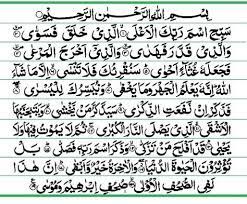 بِسْمِ اللهِ الرَّحْمٰنِ الرَّحِيْمِ
سَبِّحِ اسْمَ رَبِّكَ الْاَعْلَى ۙ الَّذِىْ خَلَقَ فَسَوّٰى ۙ
وَالَّذِىْ قَدَّرَ فَهَدٰى ۙ وَالَّذِىْۤ اَخْرَجَ الْمَرْعٰى ۙ
فَجَعَلَهٗ غُثَآءً اَحْوٰى ؕ سَنُقْرِئُكَ فَلَا تَنْسٰٓى ۙ اِلَّا مَا شَآءَ
اللهُ ؕ اِنَّهٗ يَعْلَمُ الْجَهْرَ وَمَا يَخْفٰى ؕ وَنُيَسِّرُكَ لِلْيُسْرٰى ۖ
فَذَكِّرْ اِنْ نَّفَعَتِ الذِّكْرٰى ؕ سَيَذَّكَّرُ مَنْ يَّخْشٰى ۙ وَيَتَجَنَّبُهَا
الْاَشْقَى ۙ الَّذِىْ يَصْلَى النَّارَ الْكُبْرٰى ۚ ثُمَّ لَا يَمُوْتُ فِيْهَا وَلَا
يَحْيٰى ؕ قَدْ اَفْلَحَ مَنْ تَزَكّٰى ۙ وَذَكَرَ اسْمَ رَبِّهٖ فَصَلّٰى ؕ بَلْ
تُؤْثِرُوْنَ الْحَيٰوةَ الدُّنْيَا ۖ وَالْاٰخِرَةُ خَيْرٌ وَّاَبْقٰى ؕ اِنَّ هٰذَا
لَفِى الصُّحُفِ الْاُوْلٰى ۙ صُحُفِ اِبْرٰهِيْمَ وَمُوْسٰى